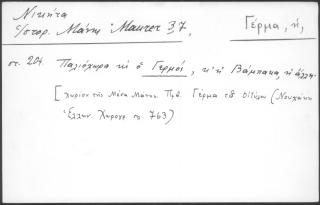 Νικήτα
Ἱστορ. Μάνη Maurer 37, Γέρμα, ἡ,
στ. 204. Παλιόχωρα κι ὁ Γερμός, κ' ἡ Βάμπακα, κ' ἄλλα.
[χωρίον τῆς Μέσα Μάνης. Πρβ. Γέρμα τοῦ Οἰτύλου (Νουχάκη
Ἑλλην. Χωρογρ. σ. 763)